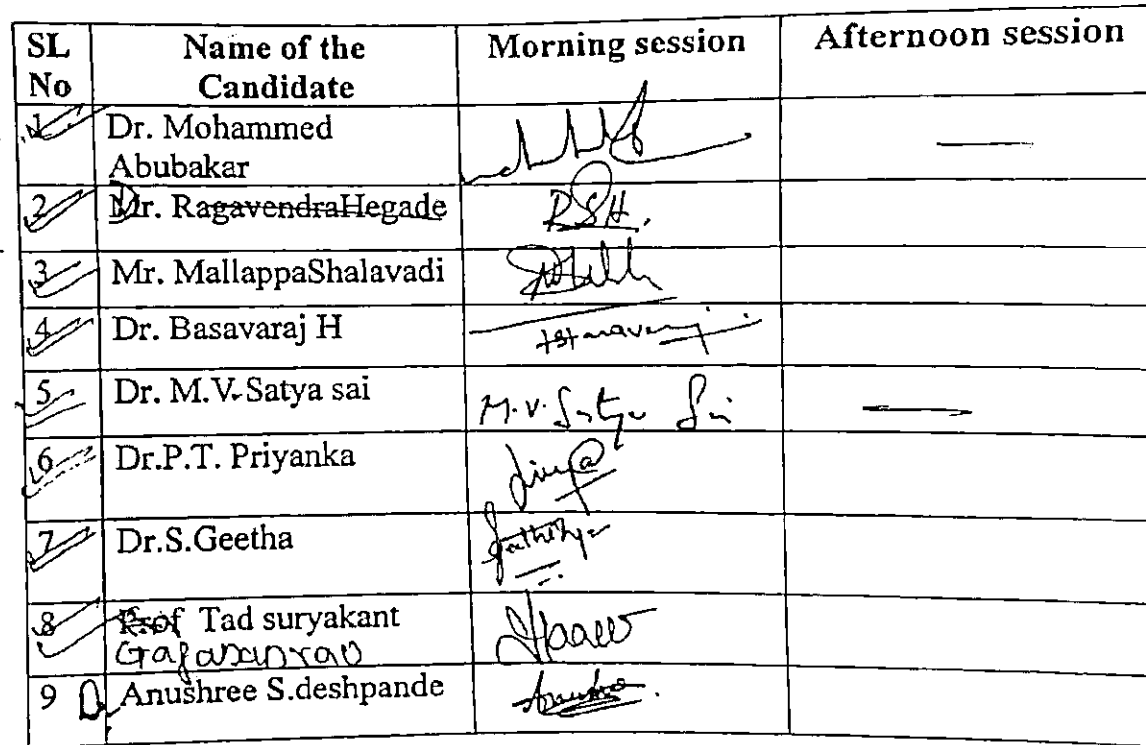 SL No Name of the Candidate Morning session Afternoon session
1. Dr. Mohammed Abubakar
2 Dr. RagavendraHegade R.S.H.
3 Mr. MallappaShalavadi
4 Dr. Basavaraj H
5 Dr. M.V. Satya sai M.V. Satya Sai
6 Dr.P.T. Priyanka
7 Dr.S.Geetha
8 Prof Tad suryakant
Gajananrao
9 D. Anushree S.deshpande